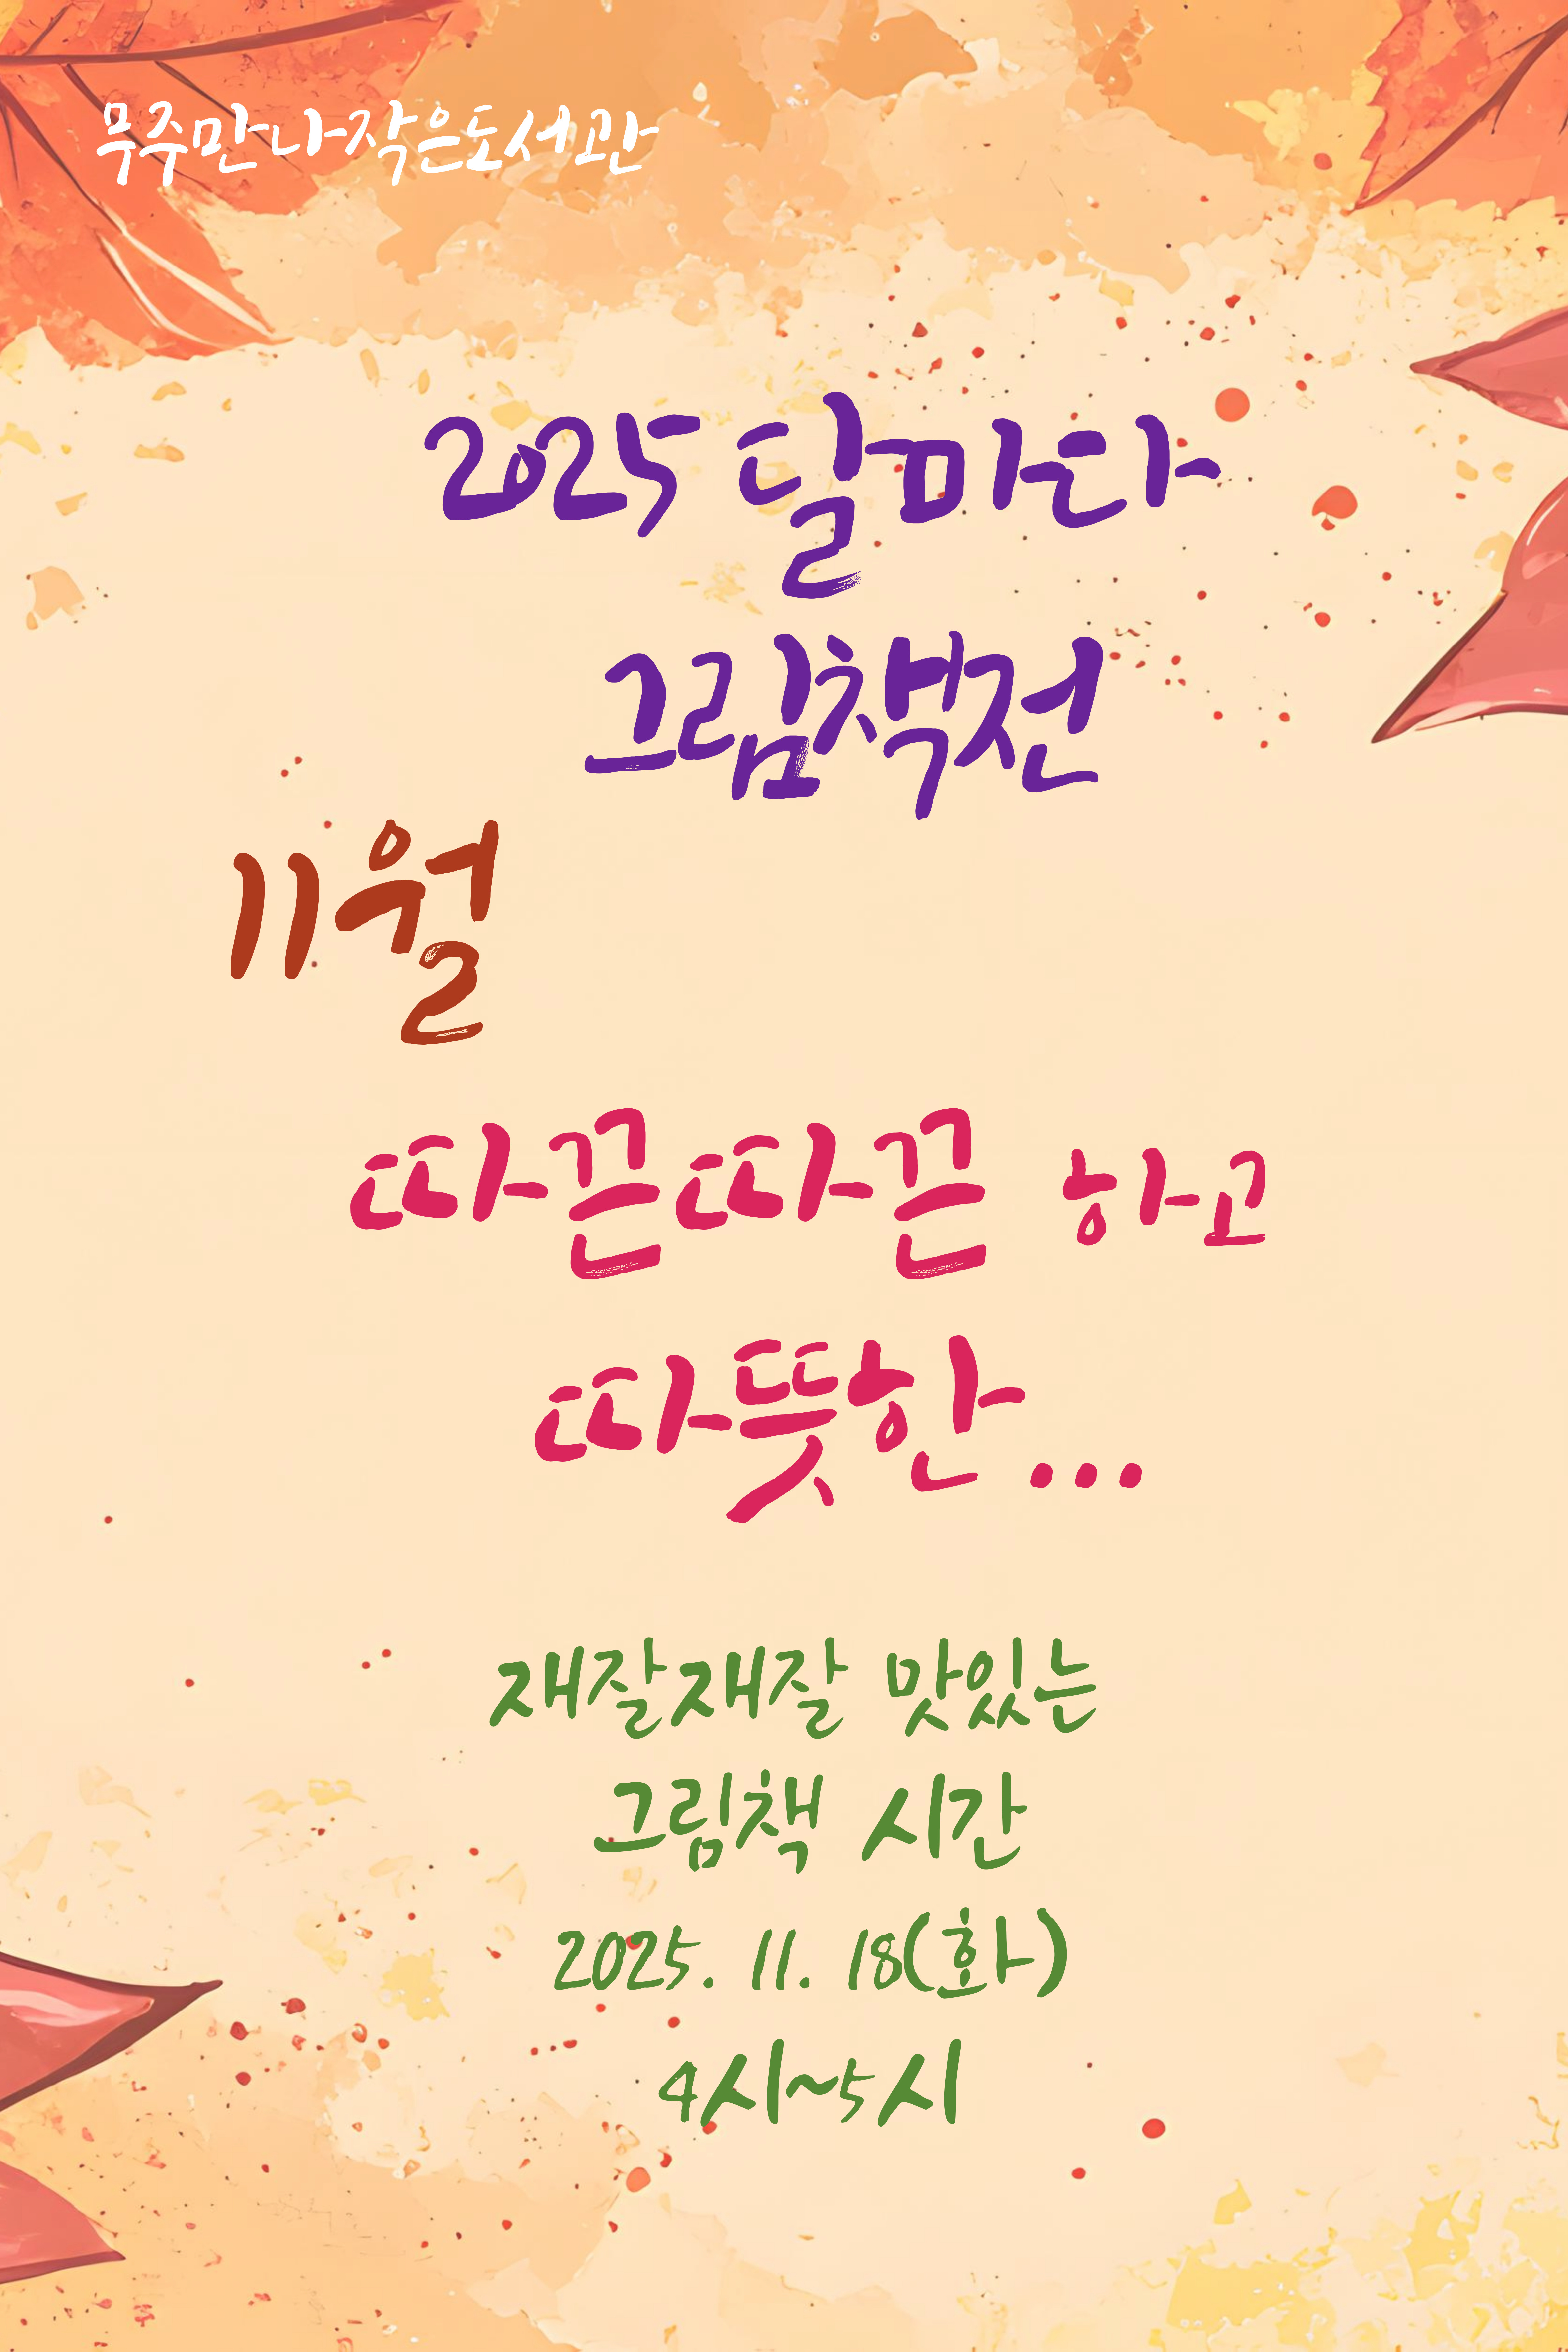 무주만나작은도서관
2025 달마다
그림책전
11월
따끈따끈 하고
따뜻한...
재잘재잘 맛있는
그림책 시간
2025. 11. 18(화)
4시~5시